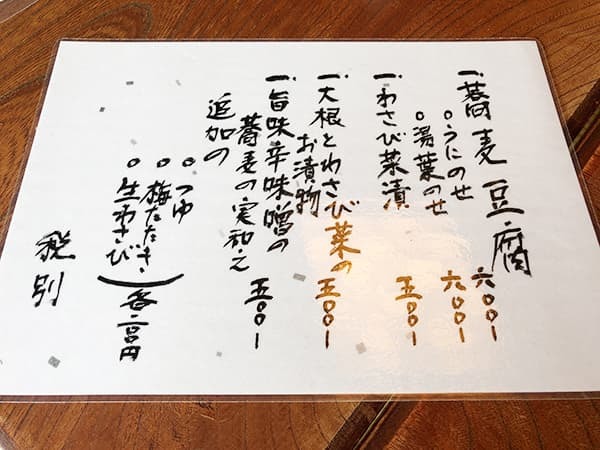 一、蕎麦豆腐
○うにのせ 六〇〇ー
○湯葉のせ 六〇〇ー
一、わさび菜漬 五〇〇ー
一、大根とわさび菜の
お漬物 五〇〇ー
一、旨味辛味噌の
蕎麦の実和え 五〇〇ー
追加の
○つゆ
○梅たたき
○生わさび
各二〇〇円
税別